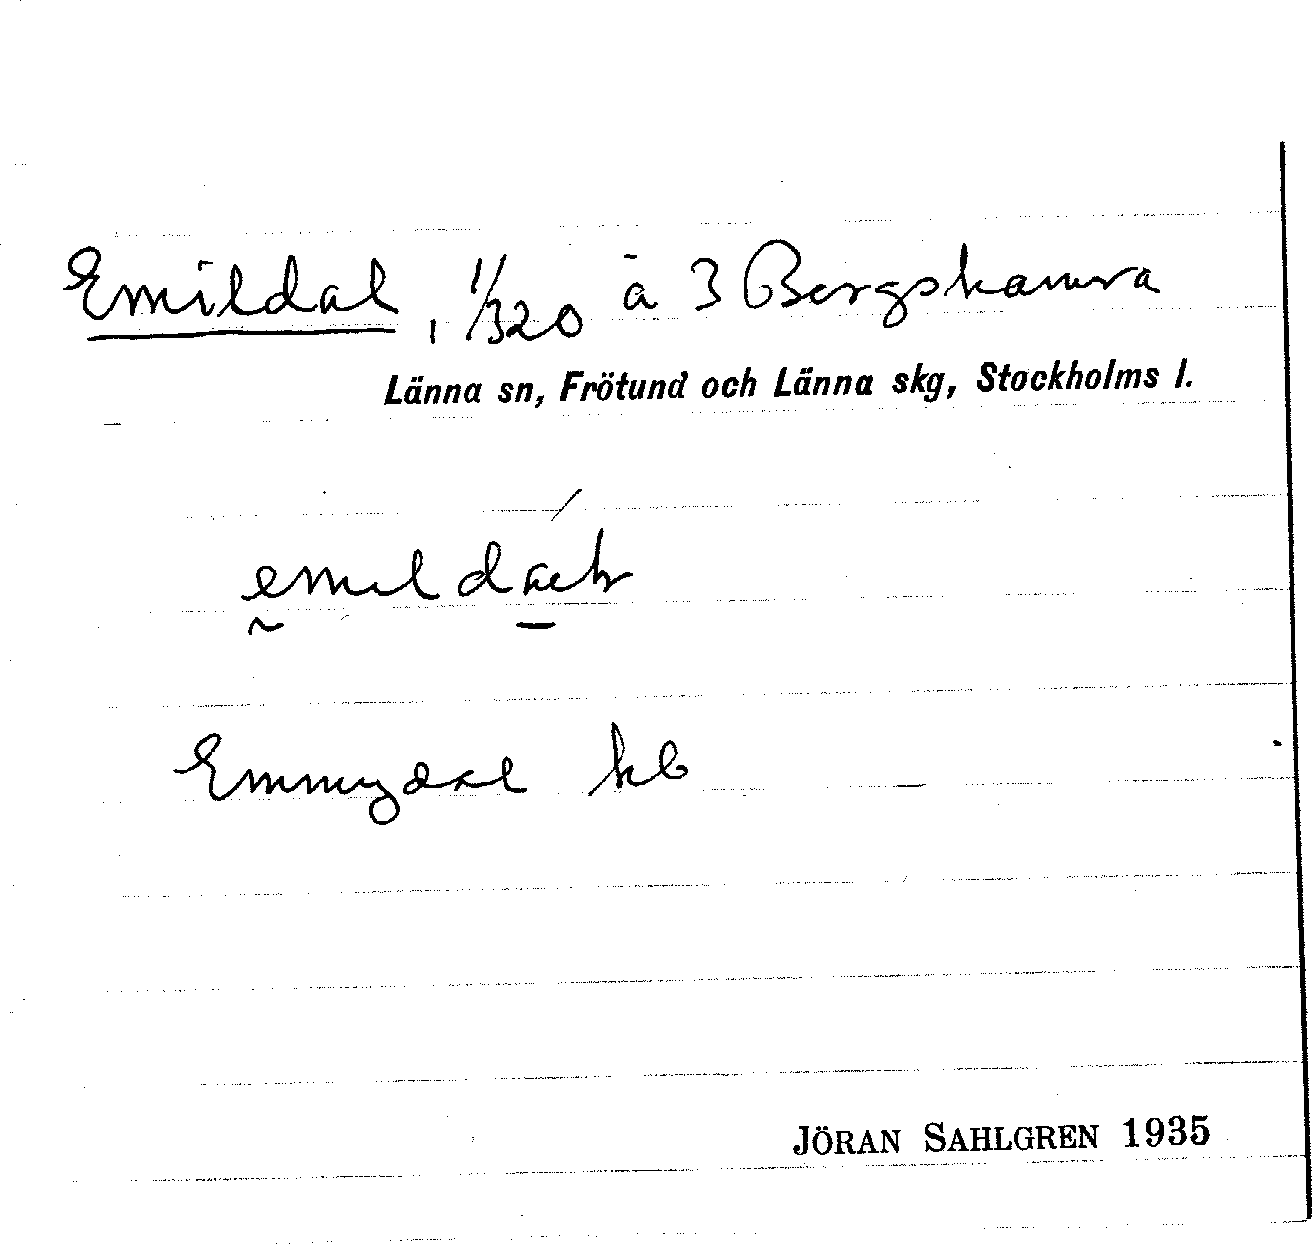 Emildal, 1/320 å 3 Bergshamra
Länna sn, Frötund och Länna skg, Stockholms l.
Emmydal kb
JÖRAN SAHLGREN 1935